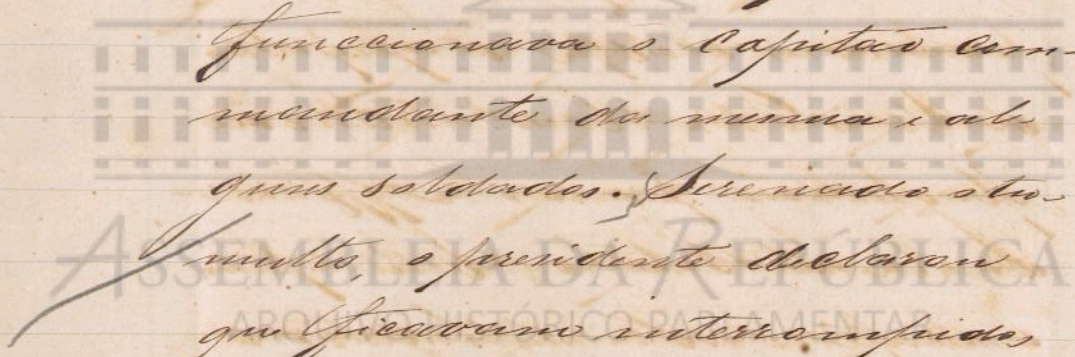 funccionava o capitão com-
mandante da mesma e al-
guns soldados. Serenado o tu-
multo, o presidente declarou
que ficavam interrompidos
ASSEMBLEIA DA REPÚBLICA
ARQUIVO HISTÓRICO PARLAMENTAR